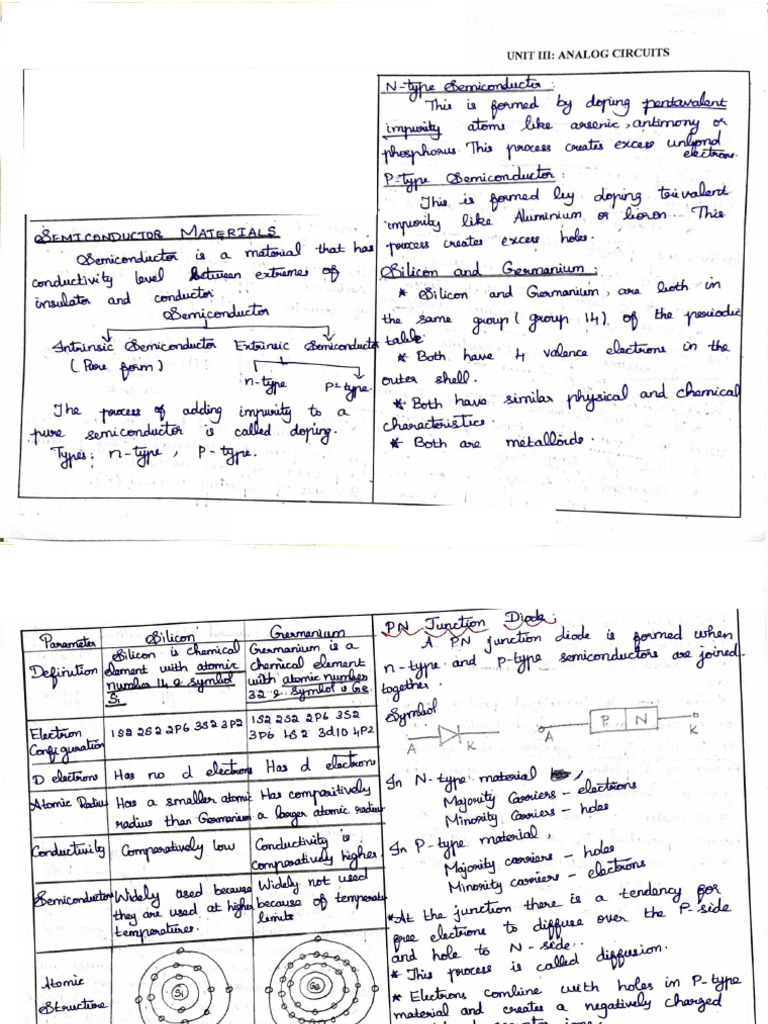 UNIT III: ANALOG CIRCUITS
SEMICONDUCTOR MATERIALS
Semiconductor is a material that has
conductivity level between extremes of
insulator and conductor
Semiconductor
Intrinsic Semiconductor Extrinsic Semiconductor
(Pure form)
n-type P-type.
The process of adding impurity to a
pure semiconductor is called doping.
Types: n-type, P-type.
N-type Semiconductor:
This is formed by doping pentavalent
impurity atoms like arsenic, antimony or
phosphorus. This process creates excess unbond
electrons.
P-type Semiconductor:
This is formed by doping trivalent
impurity like Aluminium or boron. This
process creates excess holes.
Silicon and Germanium:
* Silicon and Germanium, are both in
the same group (group 14) of the periodic
table.
* Both have 4 valence electrons in the
outer shell.
* Both have similar physical and chemical
characteristics.
* Both are metalloids.
Parameter Silicon Germanium
Definition Silicon is chemical
element with atomic
number 14 & symbol
Si
Germanium is a
chemical element
with atomic number
32 & symbol is Ge.
Electron
Configuration
1S2 2S2 2P6 3S2 3P2
1S2 2S2 2P6 3S2
3P6 4S2 3d10 4P2
D electrons Has no d electrons Has d electrons
Atomic Radius Has a smaller atomic
radius than Germanium
Has comparitively
a larger atomic radius
Conductivity Comparatively low Conductivity is
comparatively higher.
Semiconductors Widely used because
they are used at higher
temperatures.
Widely not used
because of temperature
limits
Atomic
Structure
Si
Ge
PN Junction Diode:
A PN junction diode is formed when
n-type and P-type semiconductors are joined
together.
Symbol
A K A P N K
In N-type material,
Majority Carriers - electrons
Minority Carriers - holes
In P-type material,
Majority carriers - holes
Minority carriers - electrons
* At the junction there is a tendency for
free electrons to diffuse over the P-side
and hole to N-side.
* This process is called diffusion.
* Electrons combine with holes in P-type
material and creates a negatively charged